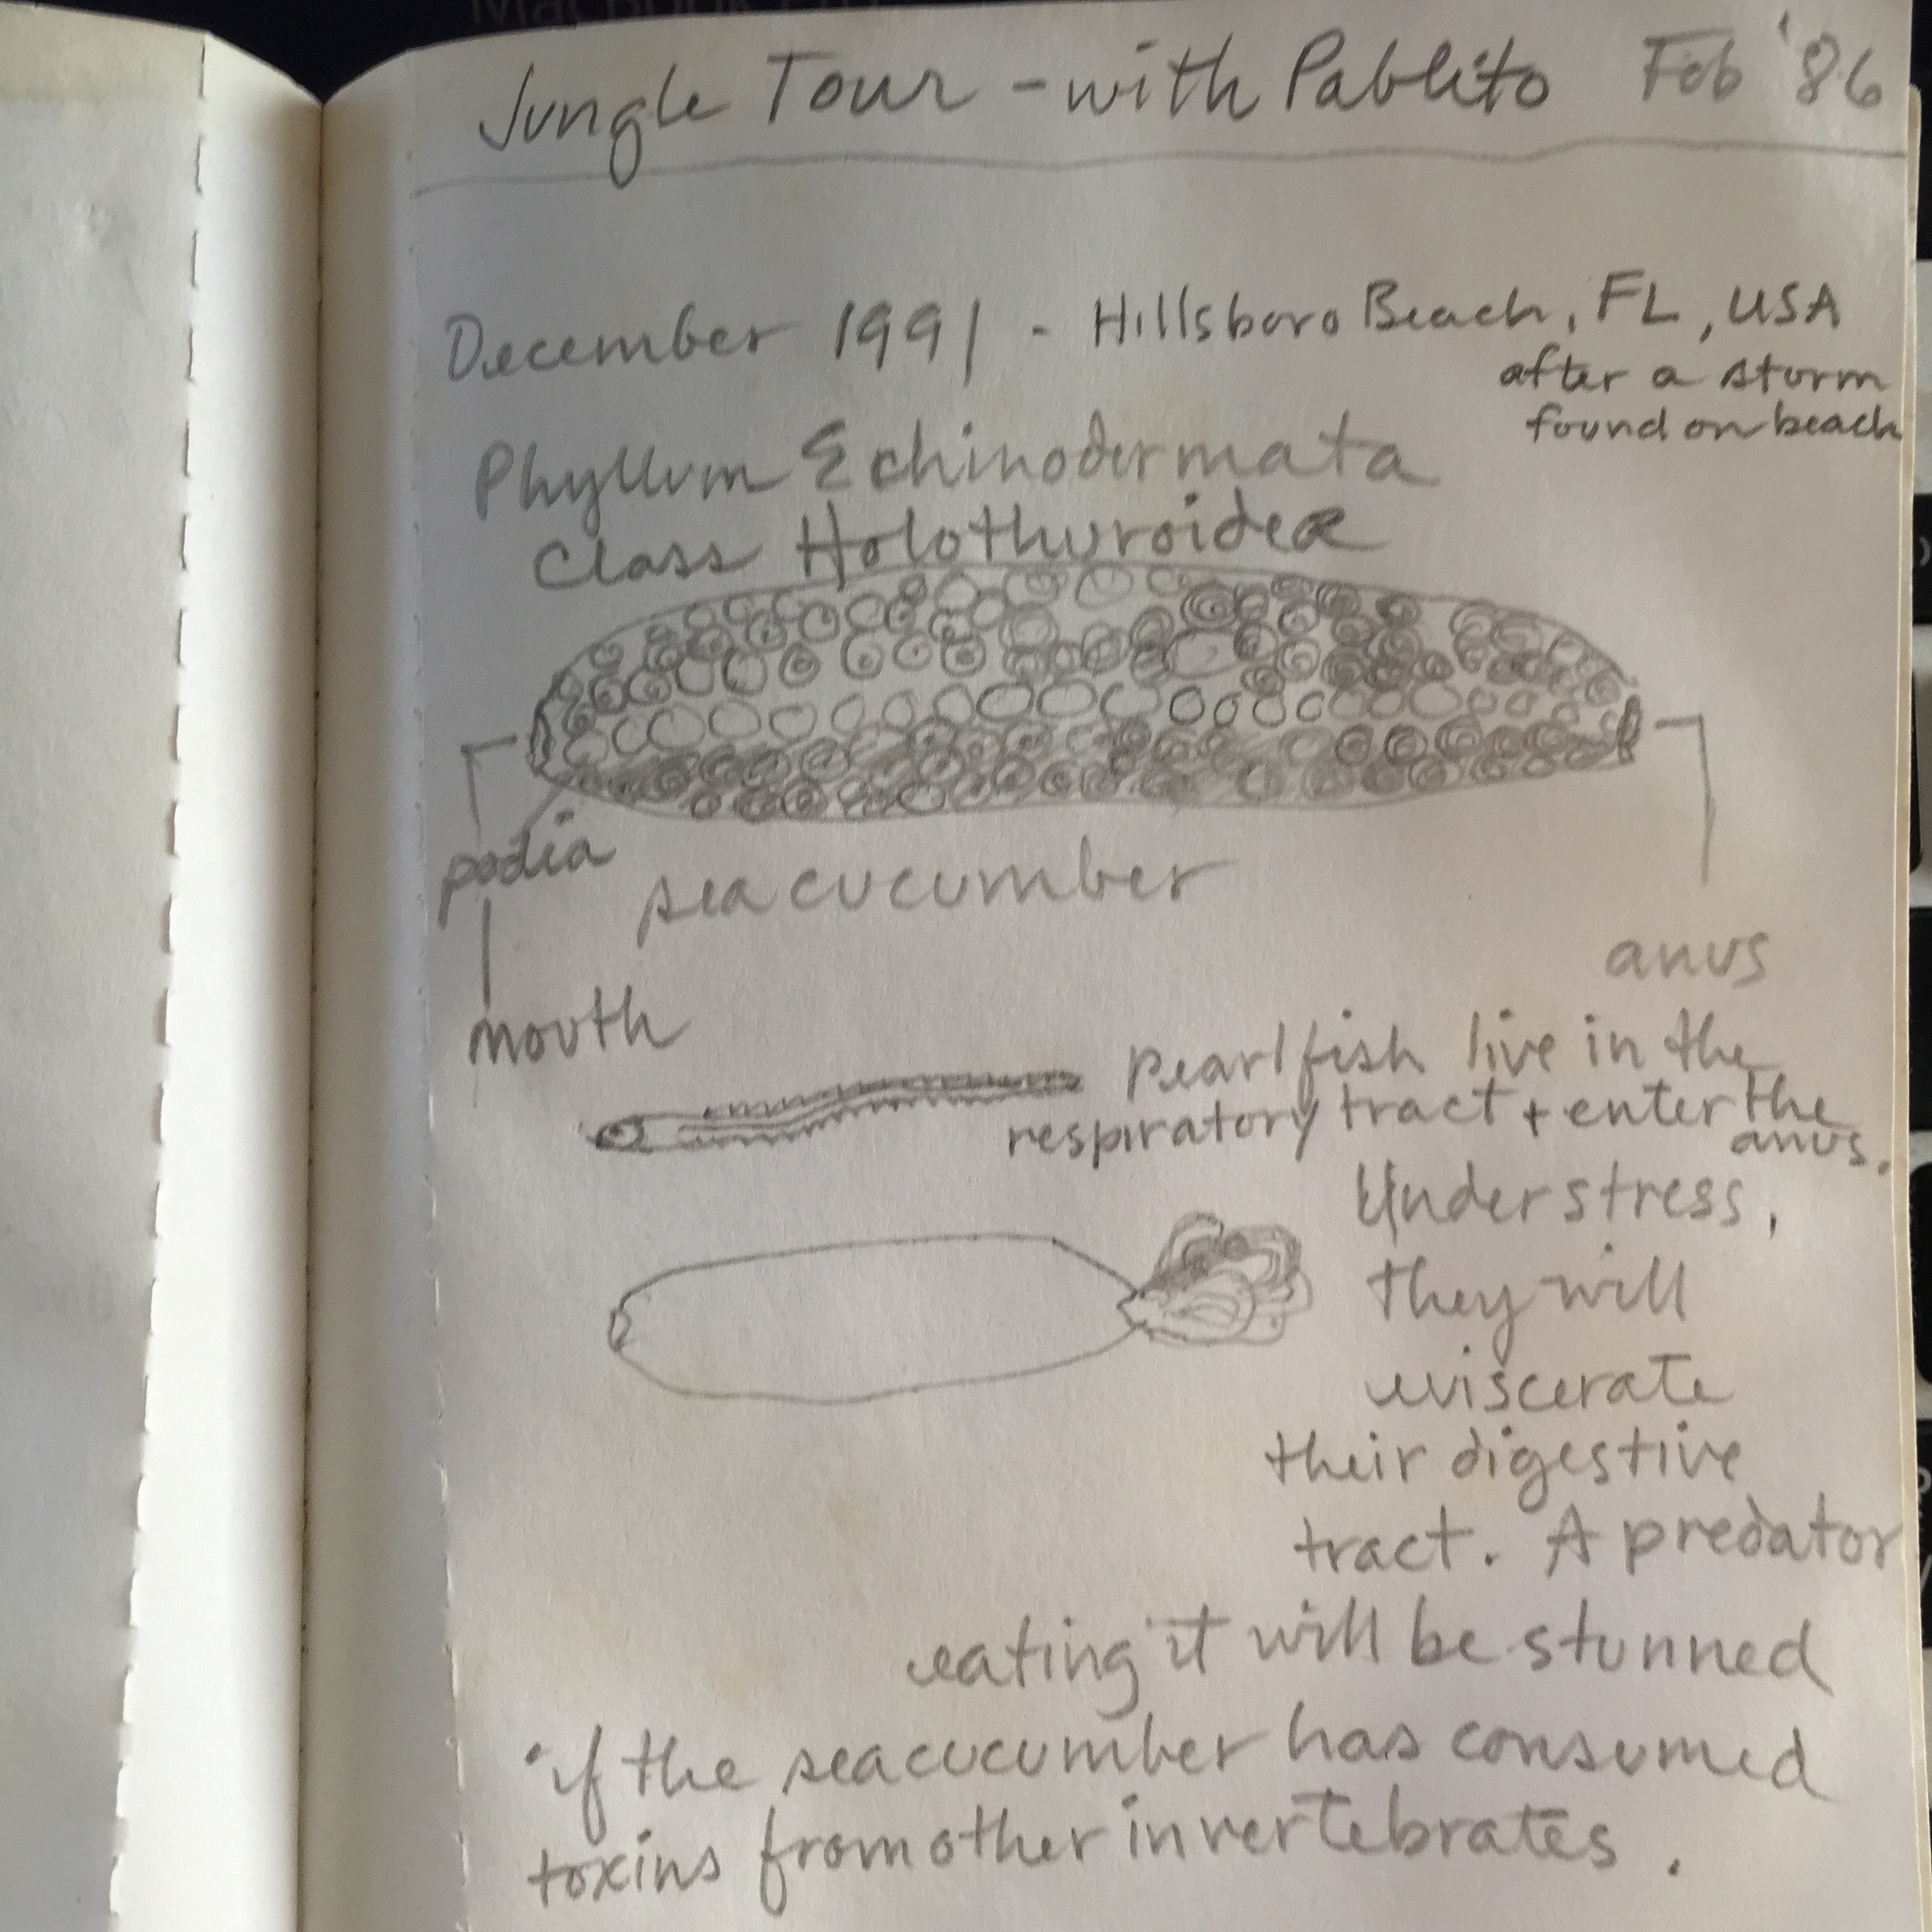 Jungle Tour - with Pablito Feb '86
December 1991 - Hillsboro Beach, FL, USA
after a storm
found on beach
Phyllum Echinodermata
Class Holothuroidea
podia
sea cucumber
anus
mouth
pearlfish live in the
respiratory tract + enter the
anus.
Under stress,
they will
eviscerate
their digestive
tract. A predator
eating it will be stunned
if the seacucumber has consumed
toxins from other invertebrates.